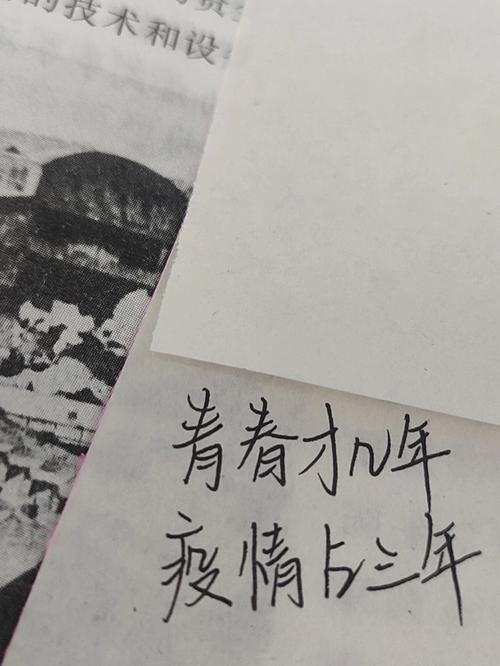 的技术和设
青春才几年
疫情占三年